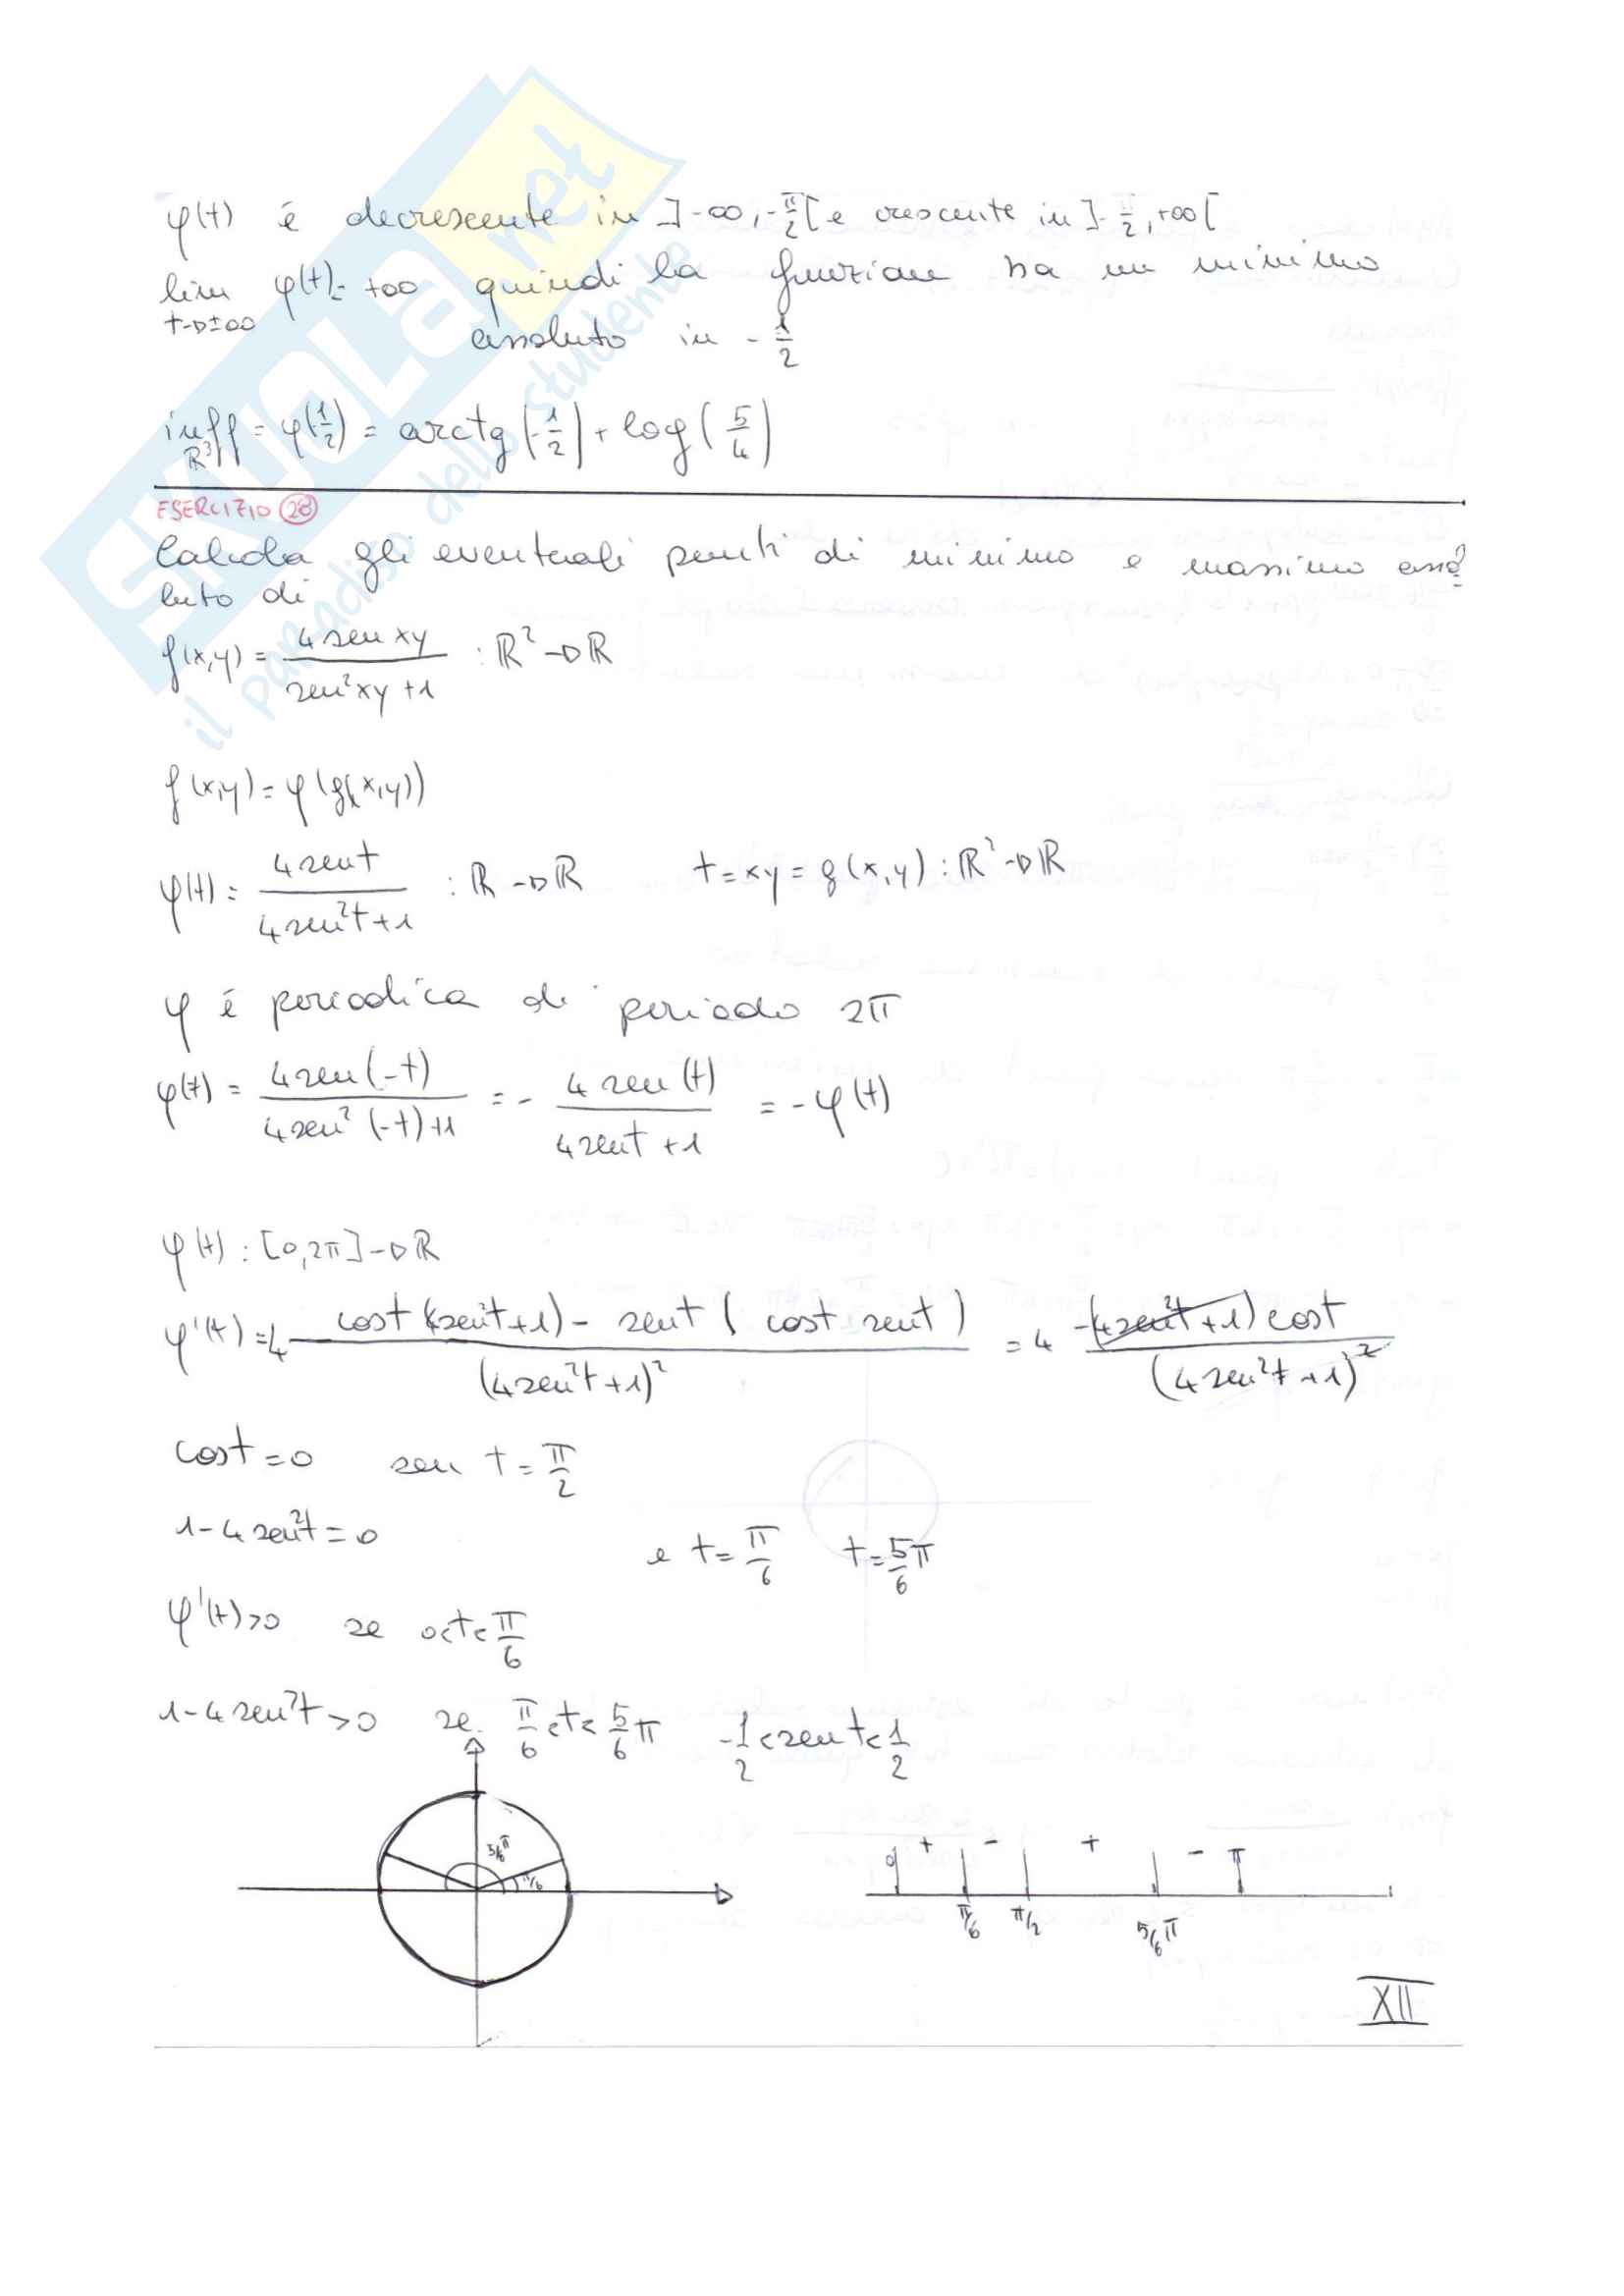 SKUOLA.net
il paradiso dello studente
φ(t) é decrescente in ]-∞,-π/2[ e crescente in ]-π/2,+∞[
lim φ(t)= +∞ quindi la funzione ha un minimo
t→±∞ assoluto in -1/2
inf f = φ(1/2) = arctg(-1/2) + log(5/4)
R³
ESERCIZIO 28
Calcola gli eventuali punti di minimo e massimo asso
luto di
f(x,y) = 4 sen xy / sen²xy +1 : ℝ² → ℝ
f(x,y) = φ(g(x,y))
φ(t) = 4 sen t / 4 sen²t +1 : ℝ → ℝ t = xy = g(x,y) : ℝ² → ℝ
φ é periodica di periodo 2π
φ(t) = 4 sen(-t) / 4 sen²(-t)+1 = - 4 sen(t) / 4 sen t +1 = -φ(t)
φ(t) : [0,2π] → ℝ
φ'(t) = 4 cos t (4 sen²t+1) - sen t ( cos t sen t ) / (4 sen²t+1)² = 4 -(4 sen²t+1) cos t / (4 sen²t+1)²
cos t = 0 sen t = π/2
1-4 sen²t = 0 e t = π/6 t = 5/6 π
φ'(t)>0 se 0<t<π/6
1-4 sen²t >0 se. π/6 <t< 5/6 π -1/2 < sen t < 1/2
5/6 π π/6
0 + - + - π
π/6 π/2 5/6 π
XII